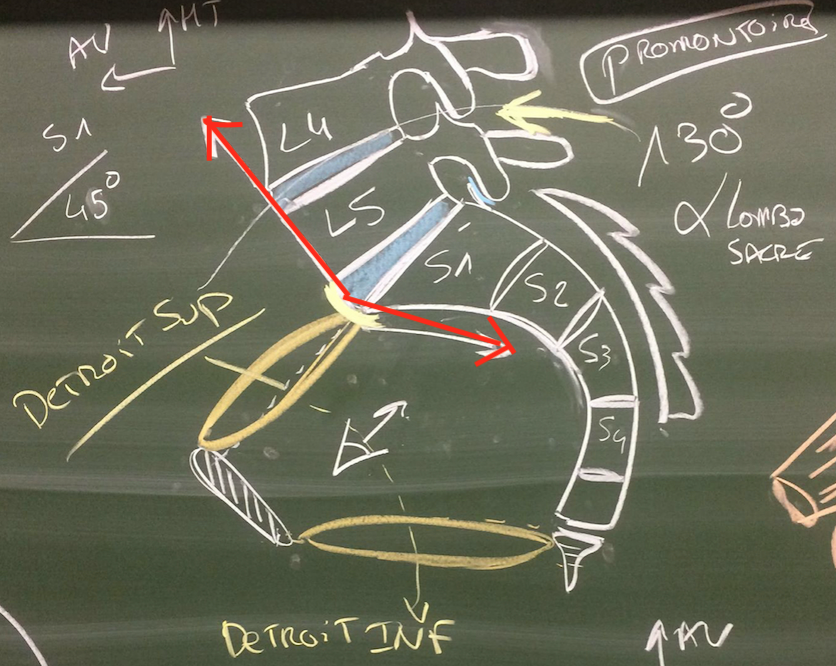 AV
HT
PROMONTOIRE
S1
45°
130°
α LOMBO
SACRÉ
L4
L5
S1
S2
S3
S4
DETROIT SUP
DETROIT INF
AV